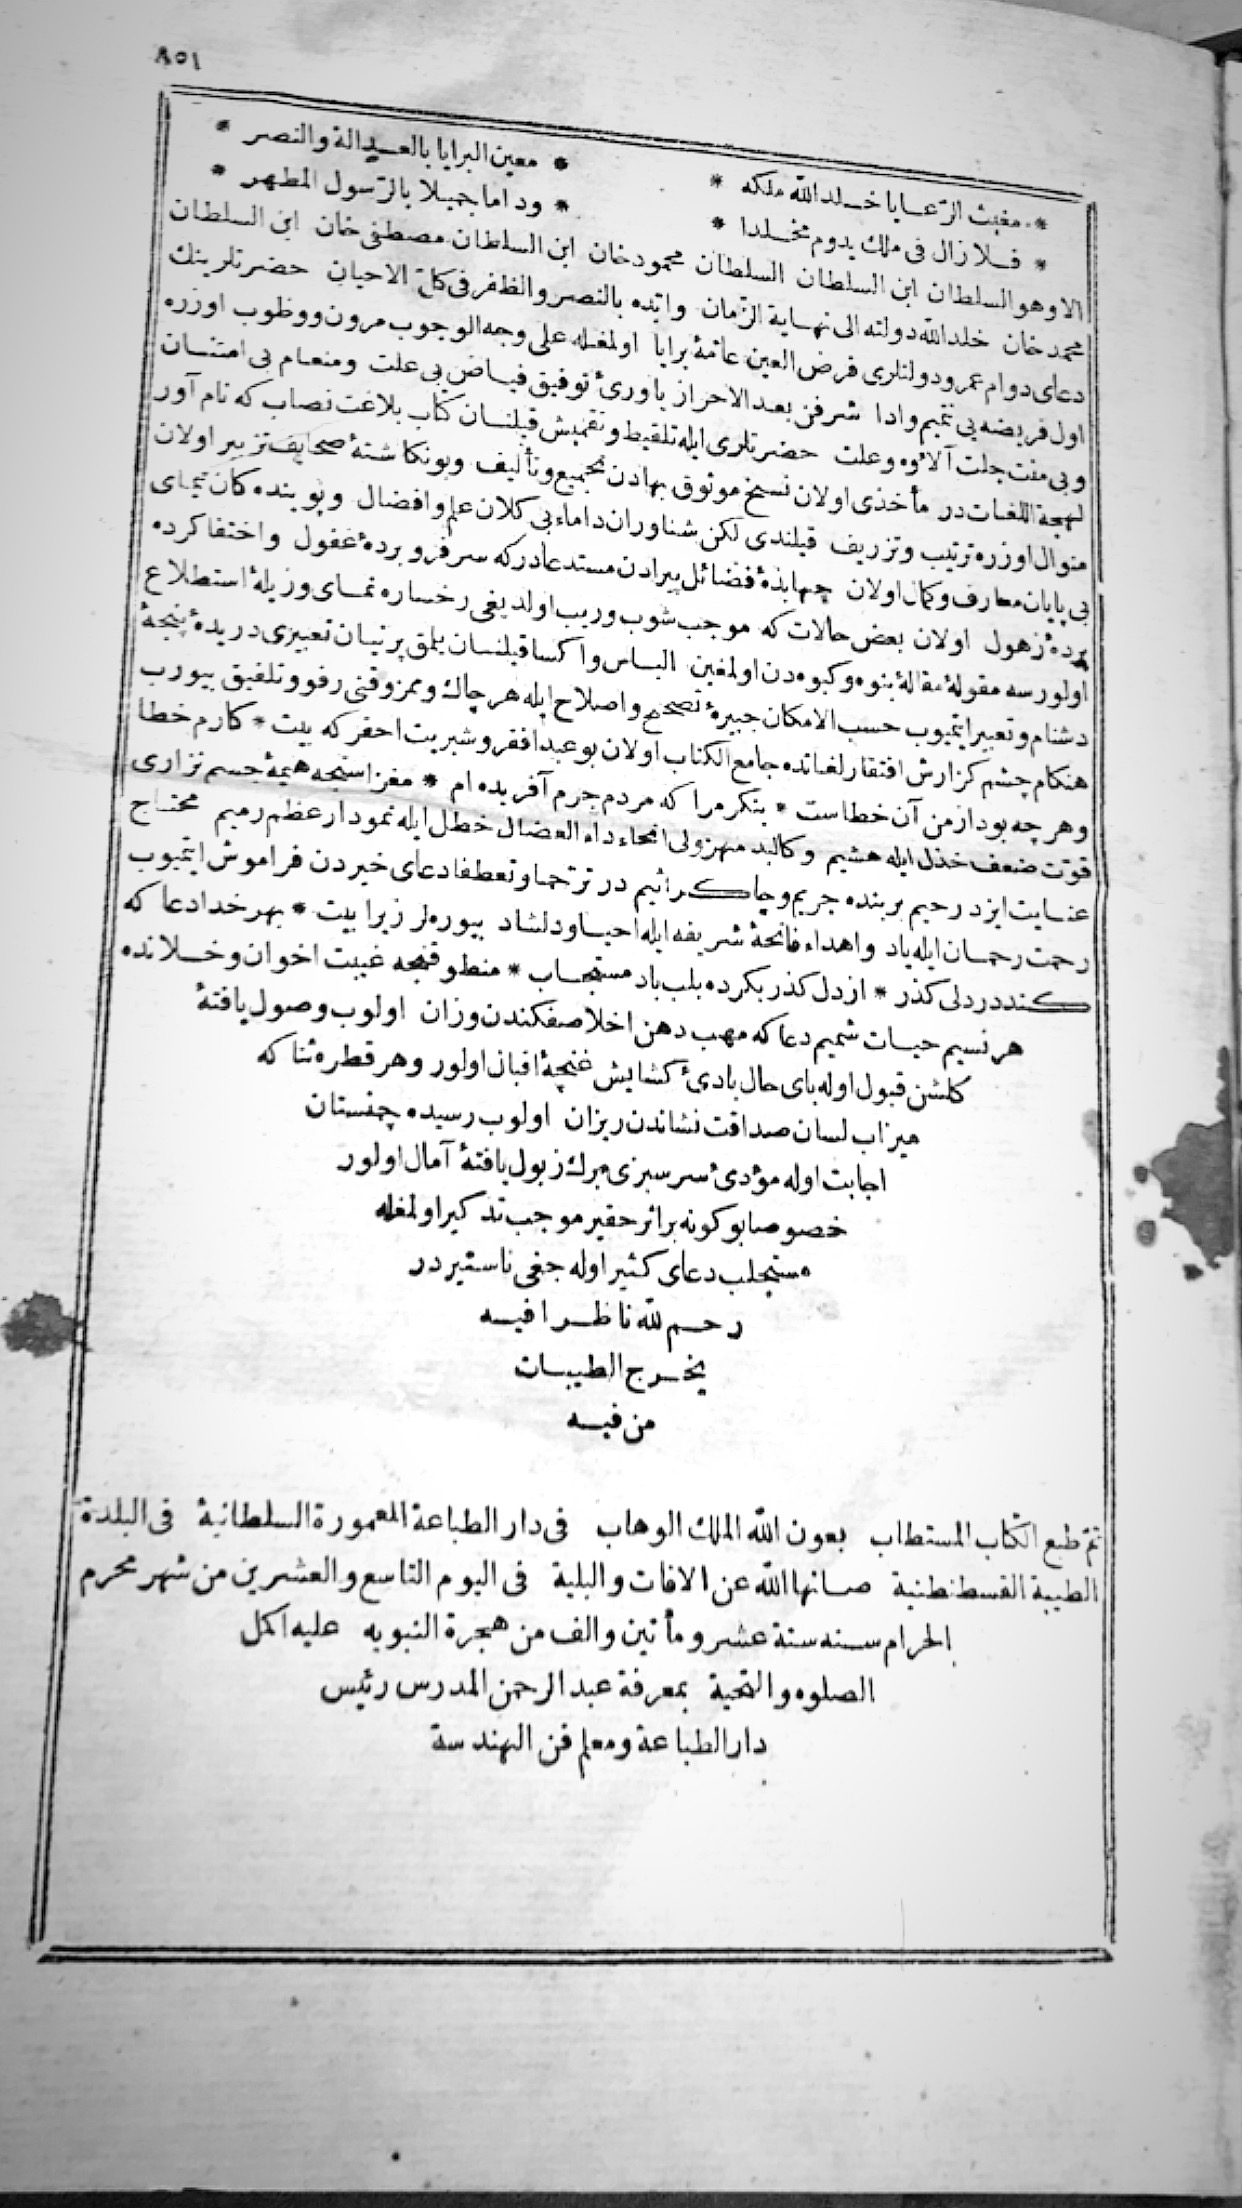 ٨٥١
* مغيث الرّعايا خلد الله ملكه * * معين البرايا بالعدالة والنصر *
* فلا زال فى ملك يدوم مخلدا * * وداما جميلا بالرّسول المطهر *
الا وهو السلطان ابن السلطان ابن السلطان السلطان محمود خان ابن السلطان مصطفى خان ابن السلطان
محمد خان خلد الله دولته الى نهاية الزمان وايده بالنصر والظفر فى كل الاحيان حضرتلرينك
دعاى دوام عمر ودولتلرى فرض العين عامهٔ برايا اولمغله على وجه الوجوب مرون ووظوب اوزره
اول فريضه يى تتميم وادا شرفن بعد الاحراز ياورىٔ توفيق فياض بى علت ومنعام بى امتنان
وبى منت جلت آلاؤه وعلت حضرتلرى ايله تلقيط وتقميش قيلنان كتاب بلاغت نصاب كه نام آور
لهجة اللغات در مأخذى اولان نسخ موثوق بهادن تجميع وتأليف وبو نكاشتهٔ صحايف تزبير اولان
منوال اوزره ترتيب وتزريف قيلندى لكن شناوران داماء بى كلان علم وافضال وپوينده كان تيماى
بى پايان معارف وكمال اولان جهابذهٔ فضائل پيرادن مستدعادركه سر فرو بردهٔ غفول واختفا كرده
پردهٔ زهول اولان بعض حالات كه موجب شوب وريب اولديغى رخساره نماى وزيلهٔ استطلاع
اولورسه مقولهٔ مقالهٔ بنوه وكبوه دن اولمغين الباس واكسا قيلنان يلمق پرنيان تعبيرى دريدهٔ پنجهٔ
دشنام وتعيير ايتميوب حسب الامكان جبيرهٔ تصحيح واصلاح ايله هر چاك وممزوقنى رفو وتلفيق بيورب
هنكام چشم كزارش افتقار لغانده جامع الكتاب اولان بو عبد افقر وشبريت احقر كه بيت * كارم خطا
وهر چه بود از من آن خطاست * بنكر مرا كه مردم جرم آفريده ام * مغز استيجه هيمهٔ جسم نزارى
قوّت ضعف خذل ايله هشيم وكالبد مهزولى انحاء داء العضال خطل ايله نمودار عظم رميم محتاج
عنايت ايزد رحيم بر بنده جريم وچاكر اثيم در ترحما وتعطفا دعاى خيردن فراموش ايتميوب
رحمت رحمان ايله ياد واهداء فاتحهٔ شريفه ايله احيا ودلشاد بيوره لر زيرا بيت * بهر خدا دعا كه
كند دردلى كذر * از دل كذر بكرده بلب باد مستجاب * منطوقنجه غيبت اخوان وخلانده
هر نسيم حيات شميم دعا كه مهب دهن اخلاصفكندن وزان اولوب وصول يافتهٔ
كلشن قبول اوله باى حال بادىٔ كشايش غنچهٔ اقبال اولور وهر قطرهٔ ثنا كه
ميزاب لسان صداقت نشاندن ريزان اولوب رسيده چمنستان
اجابت اوله مؤدىٔ سر سبزى برك زبول يافتهٔ آمال اولور
خصوصا بو كونه بر اثر حقير موجب تذكير اولمغله
مستجلب دعاى كثير اوله جغى ناستير در
رحم لله ناظرا فيه
يخرج الطيبات
من فيه
تم طبع الكتاب المستطاب بعون الله الملك الوهاب فى دار الطباعة المعمورة السلطانية فى البلدة
الطيبة القسطنطنية صانها الله عن الافات والبلية فى اليوم التاسع والعشرين من شهر محرم
الحرام سنه ستة عشر ومأتين والف من هجرة النبويه عليه اكمل
الصلوه والتحية بمعرفة عبد الرحمن المدرس رئيس
دار الطباعة ومعلم فن الهندسة